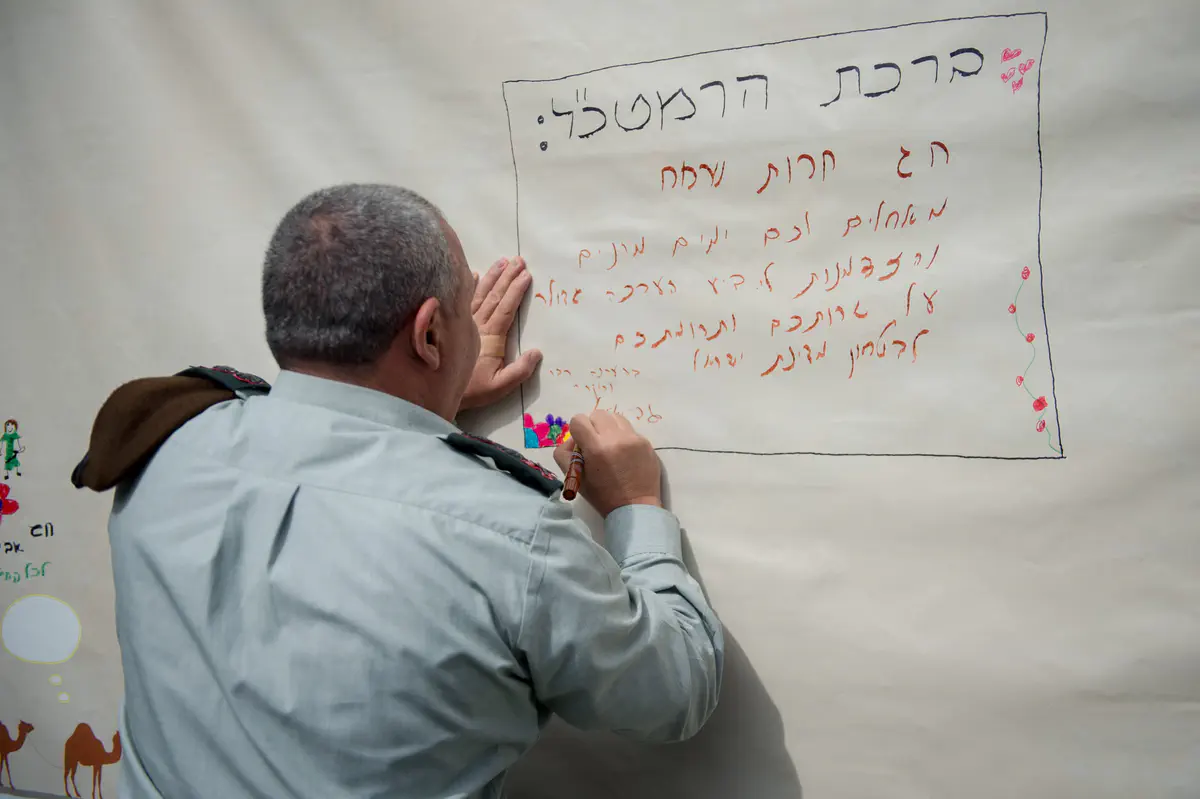 ברכת הרמטכ"ל:
חג חרות שמח
מאחלים לכם ימים
והזדמנות להביע הערכה גדולה
על שרותכם ותרומתכם
לבטחון מדינת ישראל
חג
לכל